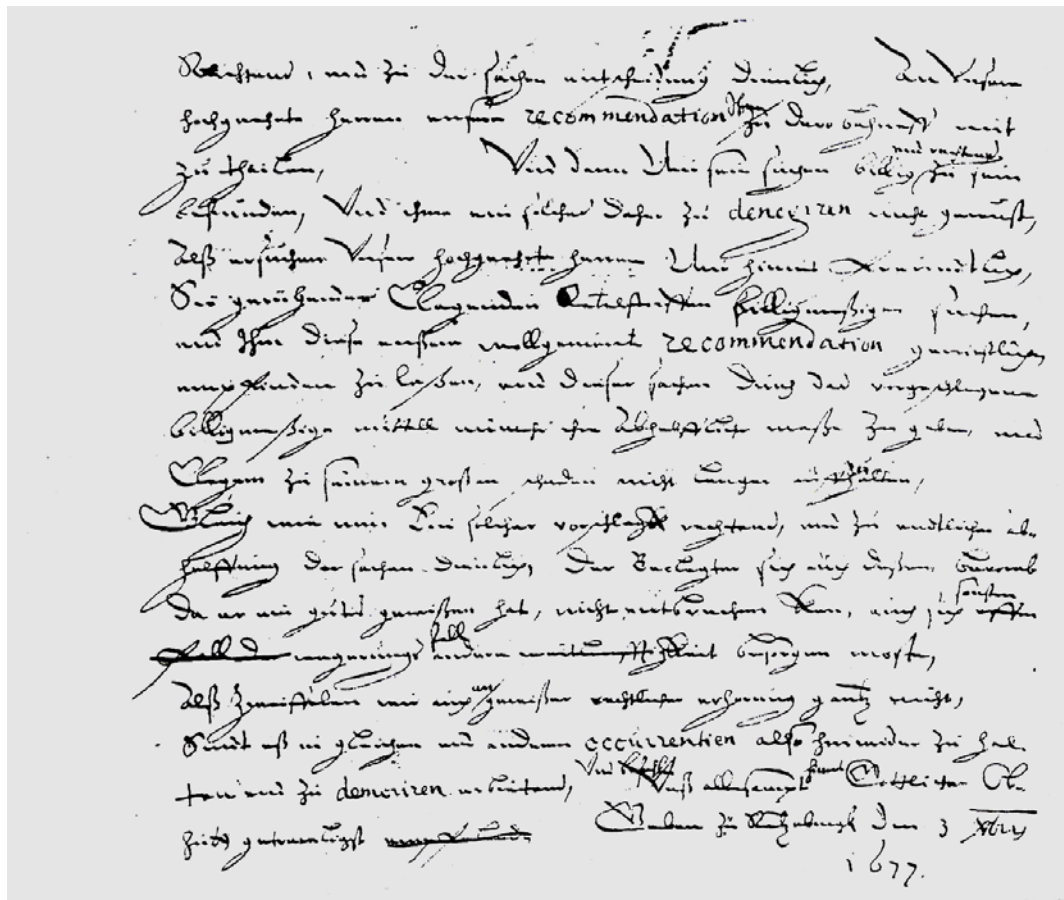 Rechtens, und zu der sachen entscheidung dienlich, An Unsere
hochgeehrte herren unsere recommendation zu dero behueff mit
zu theilen, Und dann Wir sein suchen billig und rechtens zu sein
befunden, Und ihme ein solches daher zu denegiren nicht gewust,
Alß ersuchen Unsere hochgeehrte herren Wir hiemit freundtlich,
Sie geruhen des Clagenden billigmeßigen suchen,
und Ihm diese unsere wollgemeinte recommendation genießlichen
empfinden zu laßen, und dieser sachen durch das vorgeschlagene
billigmeßige mittell nunmehr ihre Abhelffliche maße zu geben, und
Clegern zu seinem großen schaden nicht langer auffhalten,
Gleich wie nun bei solcher vorschlag rechtens, und zu endtlicher ab-
helffung der sachen dienlich, Der Beclagter sich auch deßen
da er ein gutes gewißen hat, nicht entbrechen kan, auch sich sonsten
wegerungs fall andere weitleufftigkeit besorgen moste,
Alß zweiffelen wir auch an gewißer rechtlicher erhorung gantz nicht,
Seint eß in gleichen und anderen occurrentien also hinwieder zu hal
ten und zu demeriren erbietend, Unß allesampt Gottlicher Ob-
huts getreulichst Geben zu Ratzeburgk den 3 Xbris
1677.